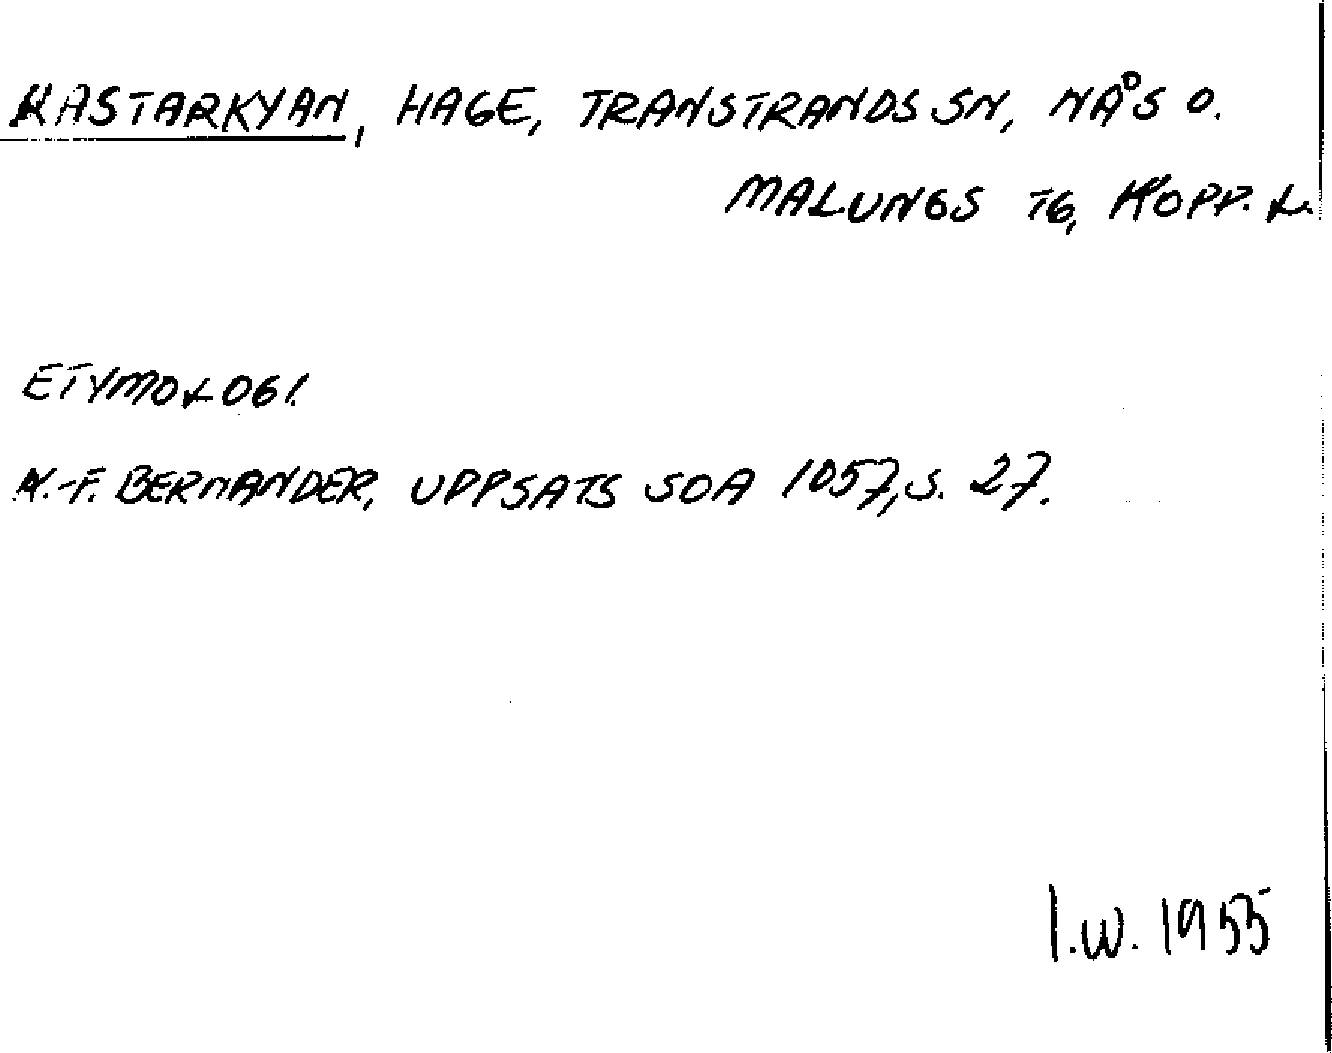 KASTARKYAN, HAGE, TRANSTRANDS SN, NÅS O.
MALUNGS TG, KOPP. L.
ETYMOLOGI.
N.-F. BERNANDER, UPPSATS SOA 1057, S. 27.
I.W. 1955